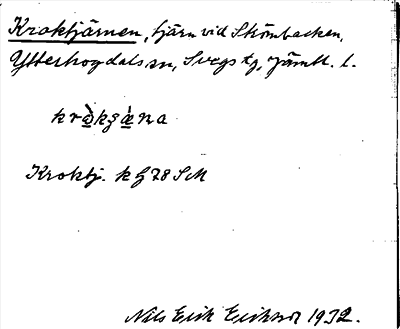 Kroktjärnen, tjärn vid Strömbacken,
Ytterhogdals sn, Svegs tg, Jämtl. l.
Kroktj. k
Nils Erik Eriksson 1932.